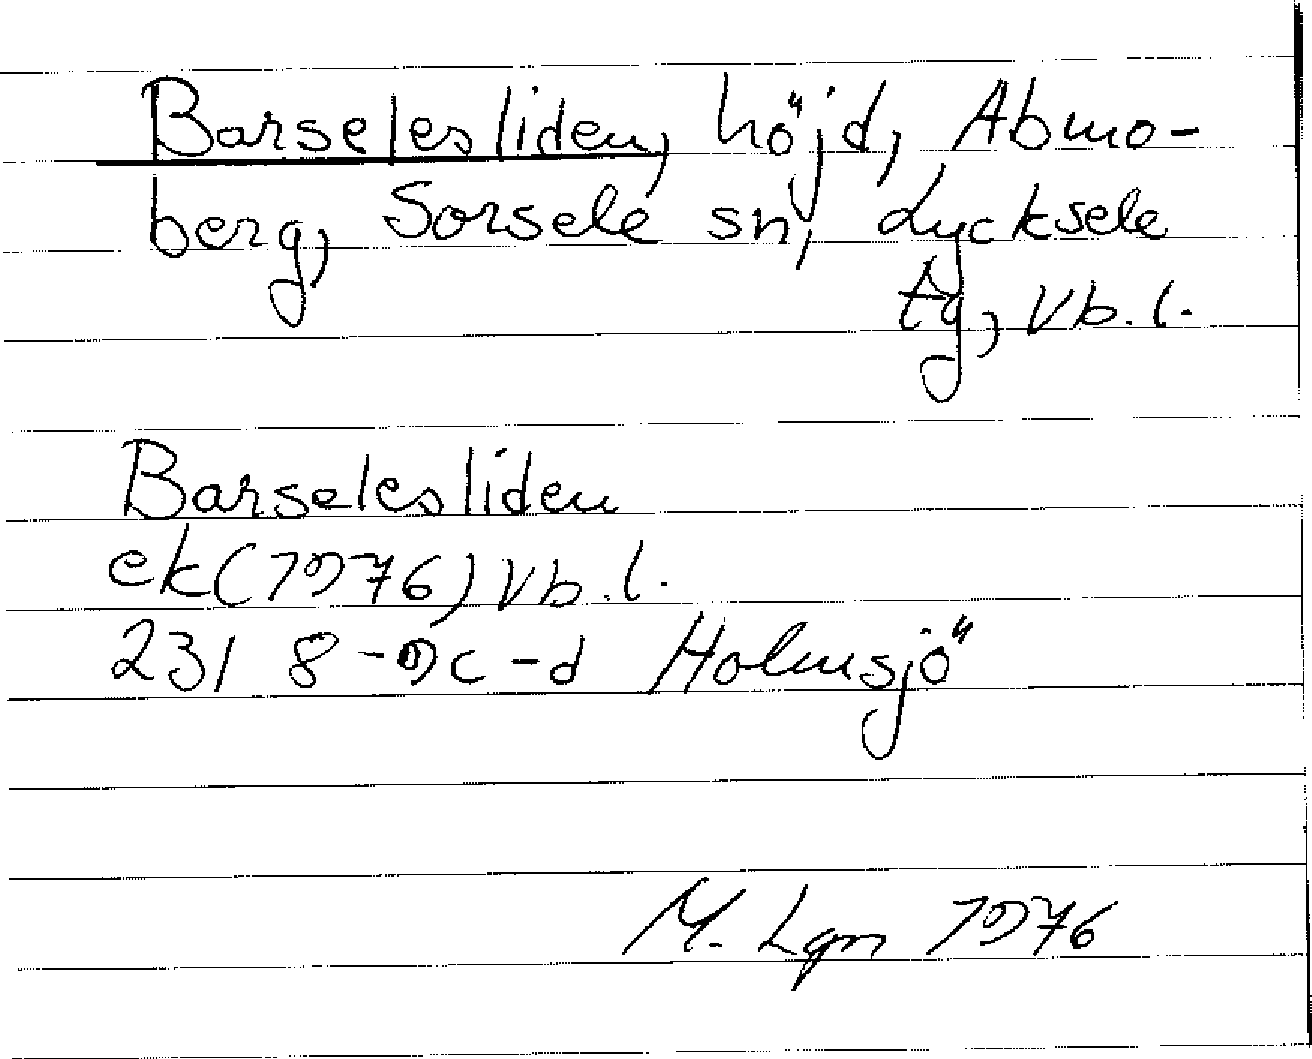 Barselesliden, höjd, Abmo-
berg, Sorsele sn, Lycksele
tg, Vb. l.
Barselesliden
ek (1976) Vb. l.
23I 8-9c-d Holmsjö
M. Lgn 1976